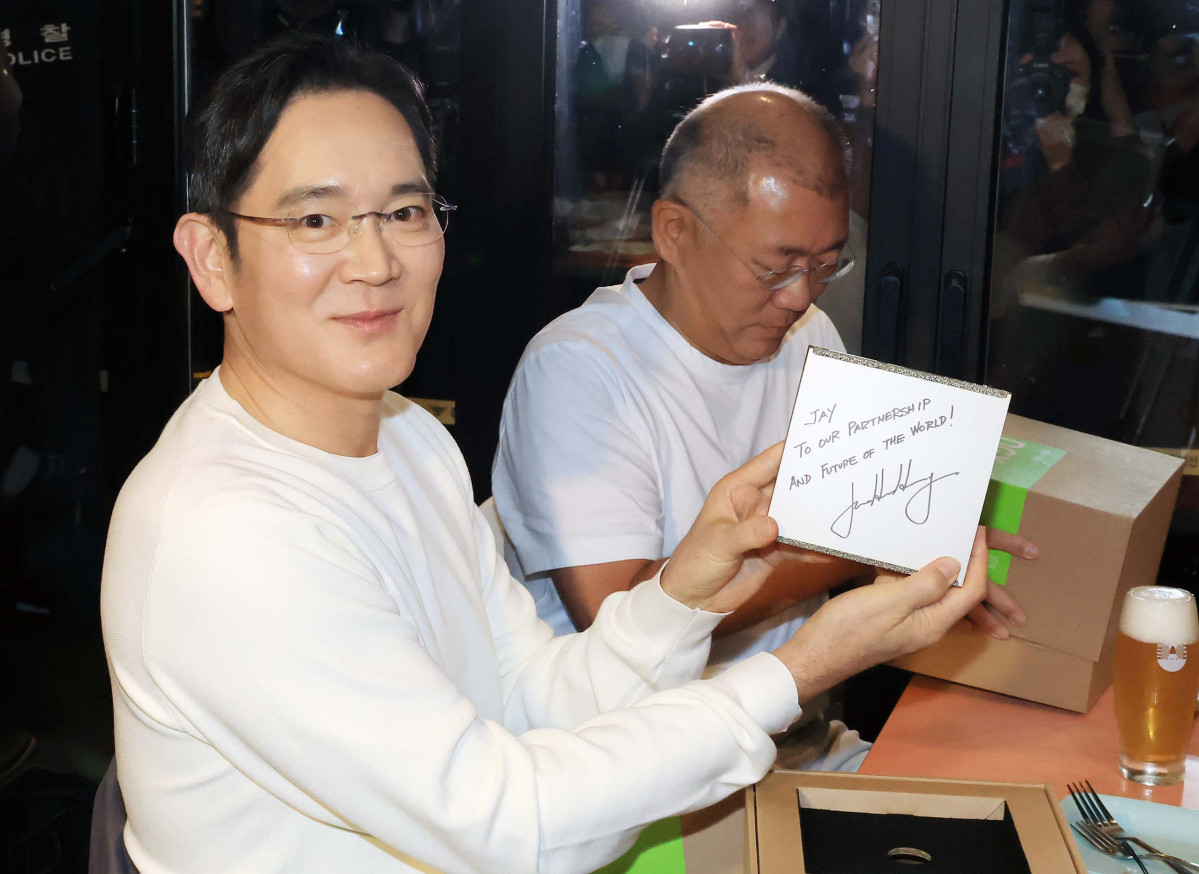 찰
POLICE
JAY
TO OUR PARTNERSHIP
AND FUTURE OF THE WORLD!